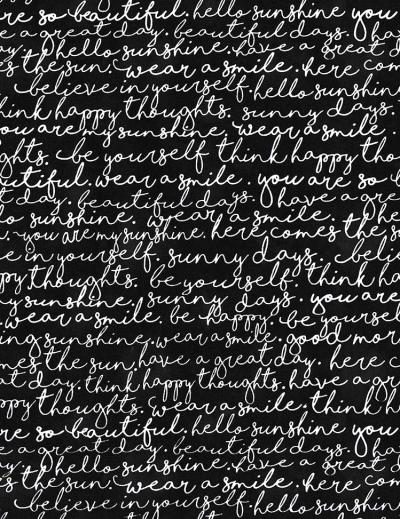 re so beautiful. hello sunshine you
e a great day. beautiful days. ha
y. hello sunshine. have a great d
s the sun. wear a smile. here com
believe in yourself. hello sunshine
hink happy thoughts. sunny days.
ou are my sunshine. wear a smile.
ghts. be yourself. think happy tho
utiful. wear a smile. you are so b
day. beautiful days. have a grea
lo sunshine. wear a smile. hel
you are my sunshine. here comes the s
e in yourself. sunny days. beli
py thoughts. be yourself. think ha
y sunshine. sunny days. you are
wear a smile. be happy. be yoursel
ing sunshine. wear a smile. good mor
mes the sun. have a great day. here c
at day. think happy thoughts. have a gr
ppy thoughts. wear a smile. think h
re so beautiful. hello sunshine you
e a great day. beautiful days. ha
y. hello sunshine. have a great d
s the sun. wear a smile. here com
believe in yourself. hello sunshin